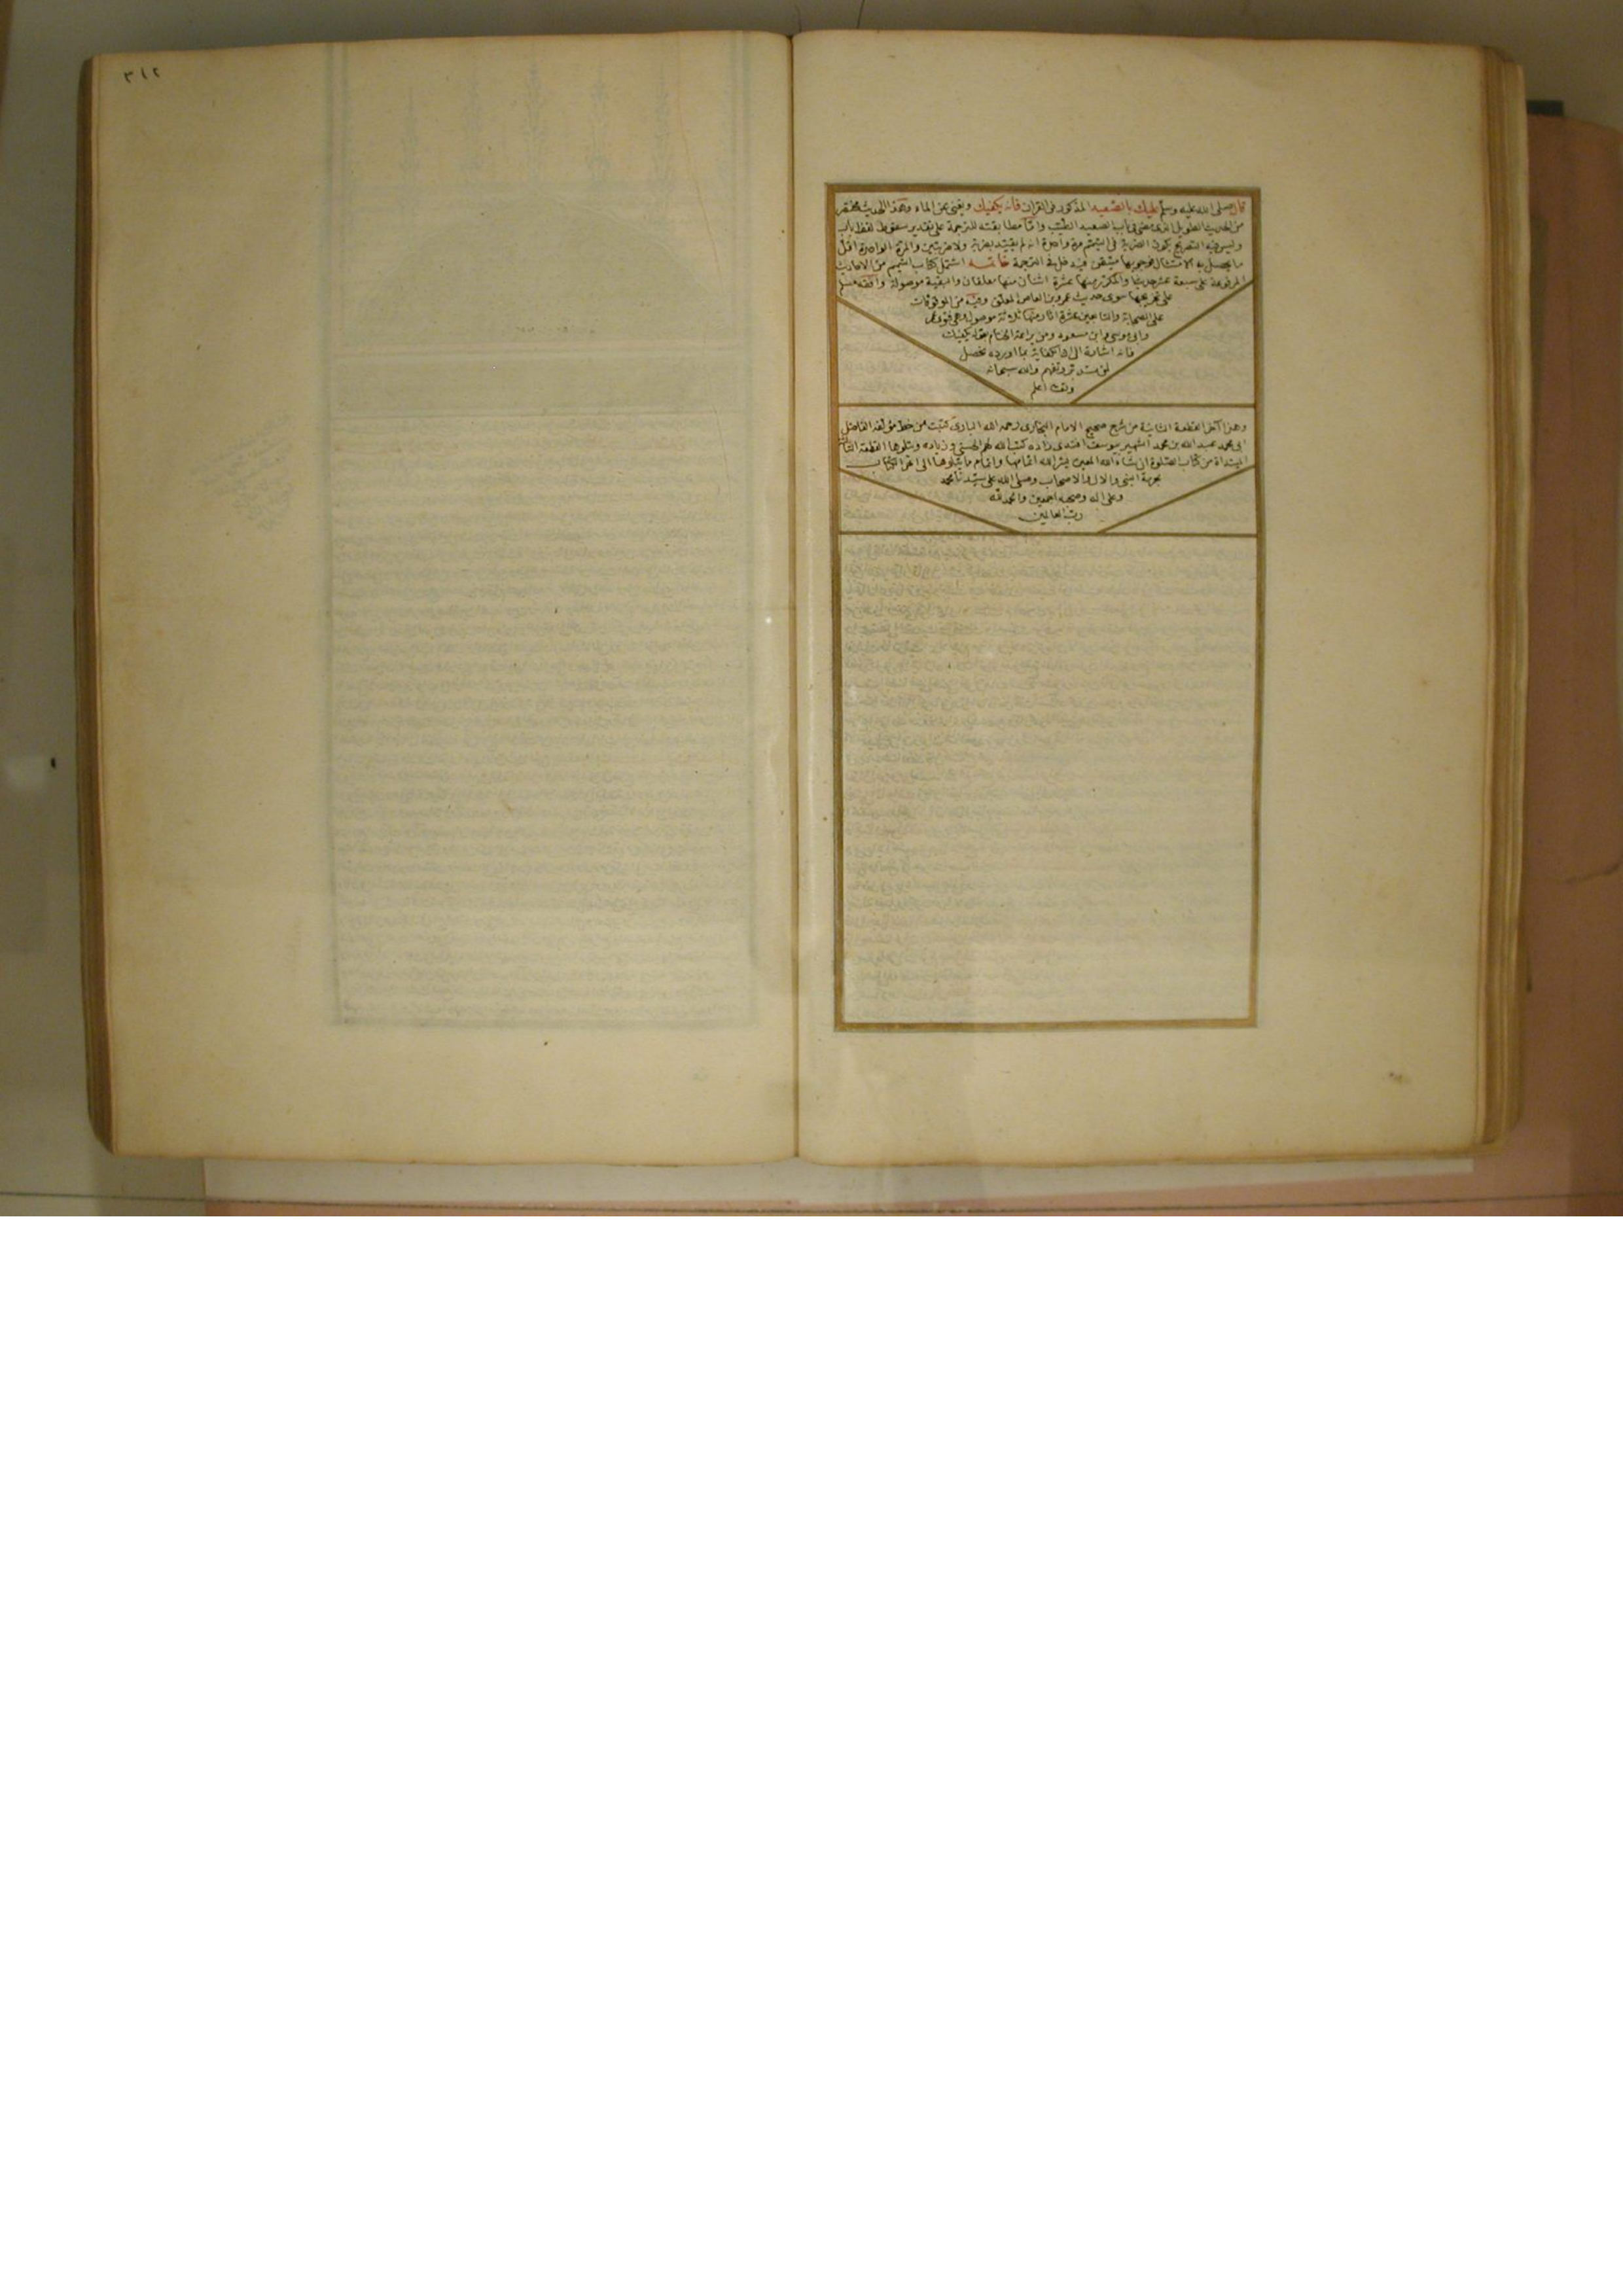 قال صلى الله عليه وسلم عليك بالصعيد المذكور في القرآن فانه يكفيك ويغني عن الماء وهذا الحديث مختصر
من الحديث الطويل الذي مضى في باب الصعيد الطيب واما مطابقته للترجمة على تقدير سقوط لفظ باب
وليس فيه التصريح بكون الضربة في التيمم مرة واحدة انه لم يقيد بضربة ولا ضربتين والمرة الواحدة اقل
ما يحصل به الامتثال فوجوبها متيقن فيدخل في الترجمة خاتمه اشتمل كتاب التيمم من الاحاديث
المرفوعة على سبعة عشر حديثا والمكرر منها عشرة اثنان منها معلقان والبقية موصولة وافقه مسلم
على تخريجها سوى حديث عمرو بن العاص المعلق وفيه من الموقوفات
على الصحابة والتابعين عشرة اثار منها ثلاثة موصولة وهي فتوى عمر
وابي موسى وابن مسعود ومن براعة الختام بقوله يكفيك
فانه اشارة الى ان الكفاية بما اورده تحصل
لمن تدبر وتفهم والله سبحانه
وتعالى اعلم
وهذا آخر القطعة الثانية من شرح صحيح الامام البخاري رحمه الله الباري كتبت من خط مؤلفه الفاضل
ابي محمد عبد الله بن محمد الشهير بيوسف افندي زاده كتب الله لهم الحسنى وزياده ويتلوها القطعة الثالثة
المبتداة من كتاب الصلوة ان شاء الله المعين يسر الله اتمامها واتمام ما يتلوها الى آخر الكتاب
بحرمة النبي والال والاصحاب وصلى الله على سيدنا محمد
وعلى اله وصحبه اجمعين والحمد لله
رب العالمين
٣١٢